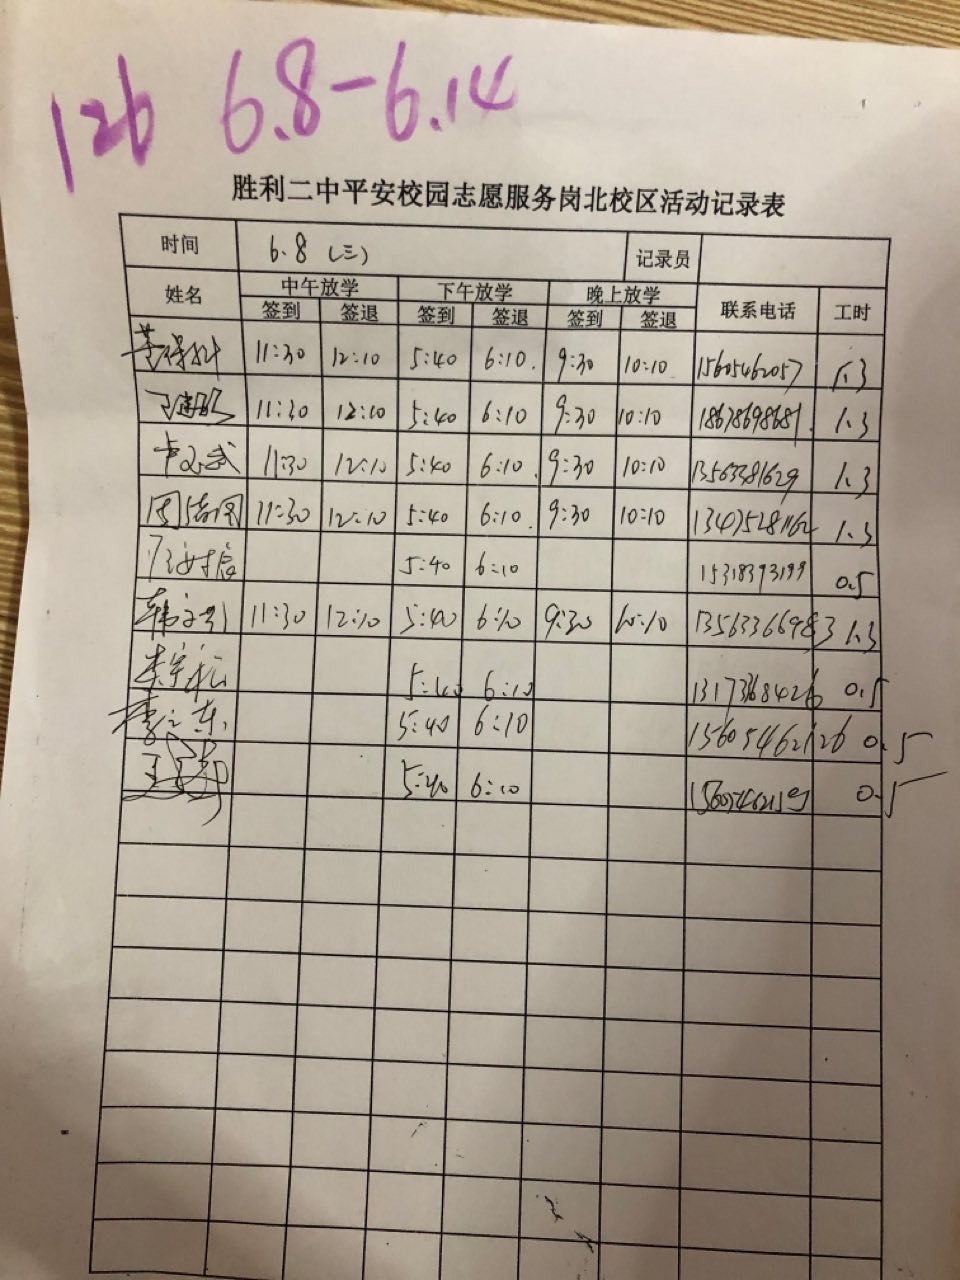 126 6.8-6.14
胜利二中平安校园志愿服务岗北校区活动记录表
时间 6.8 (三) 记录员
姓名 中午放学 下午放学 晚上放学 联系电话 工时
签到 签退 签到 签退 签到 签退
11:30 12:10 5:40 6:10. 9:30 10:10 15605462057 1.3
11:30 12:10 5:40 6:10 9:30 10:10 18678698681 1.3
11:30 12:10 5:40 6:10. 9:30 10:10 1.3
11:30 12:10 5:40 6:10. 9:30 10:10 1.3
5:40 6:10 15318393199 0.5
韩 11:30 12:10 5:40 6:10 9:30 10:10 13563366983 1.3
李宇 5:40 6:10 1317368426 0.5
5:40 6:10 15605462126 0.5
5:40 6:10 0.5